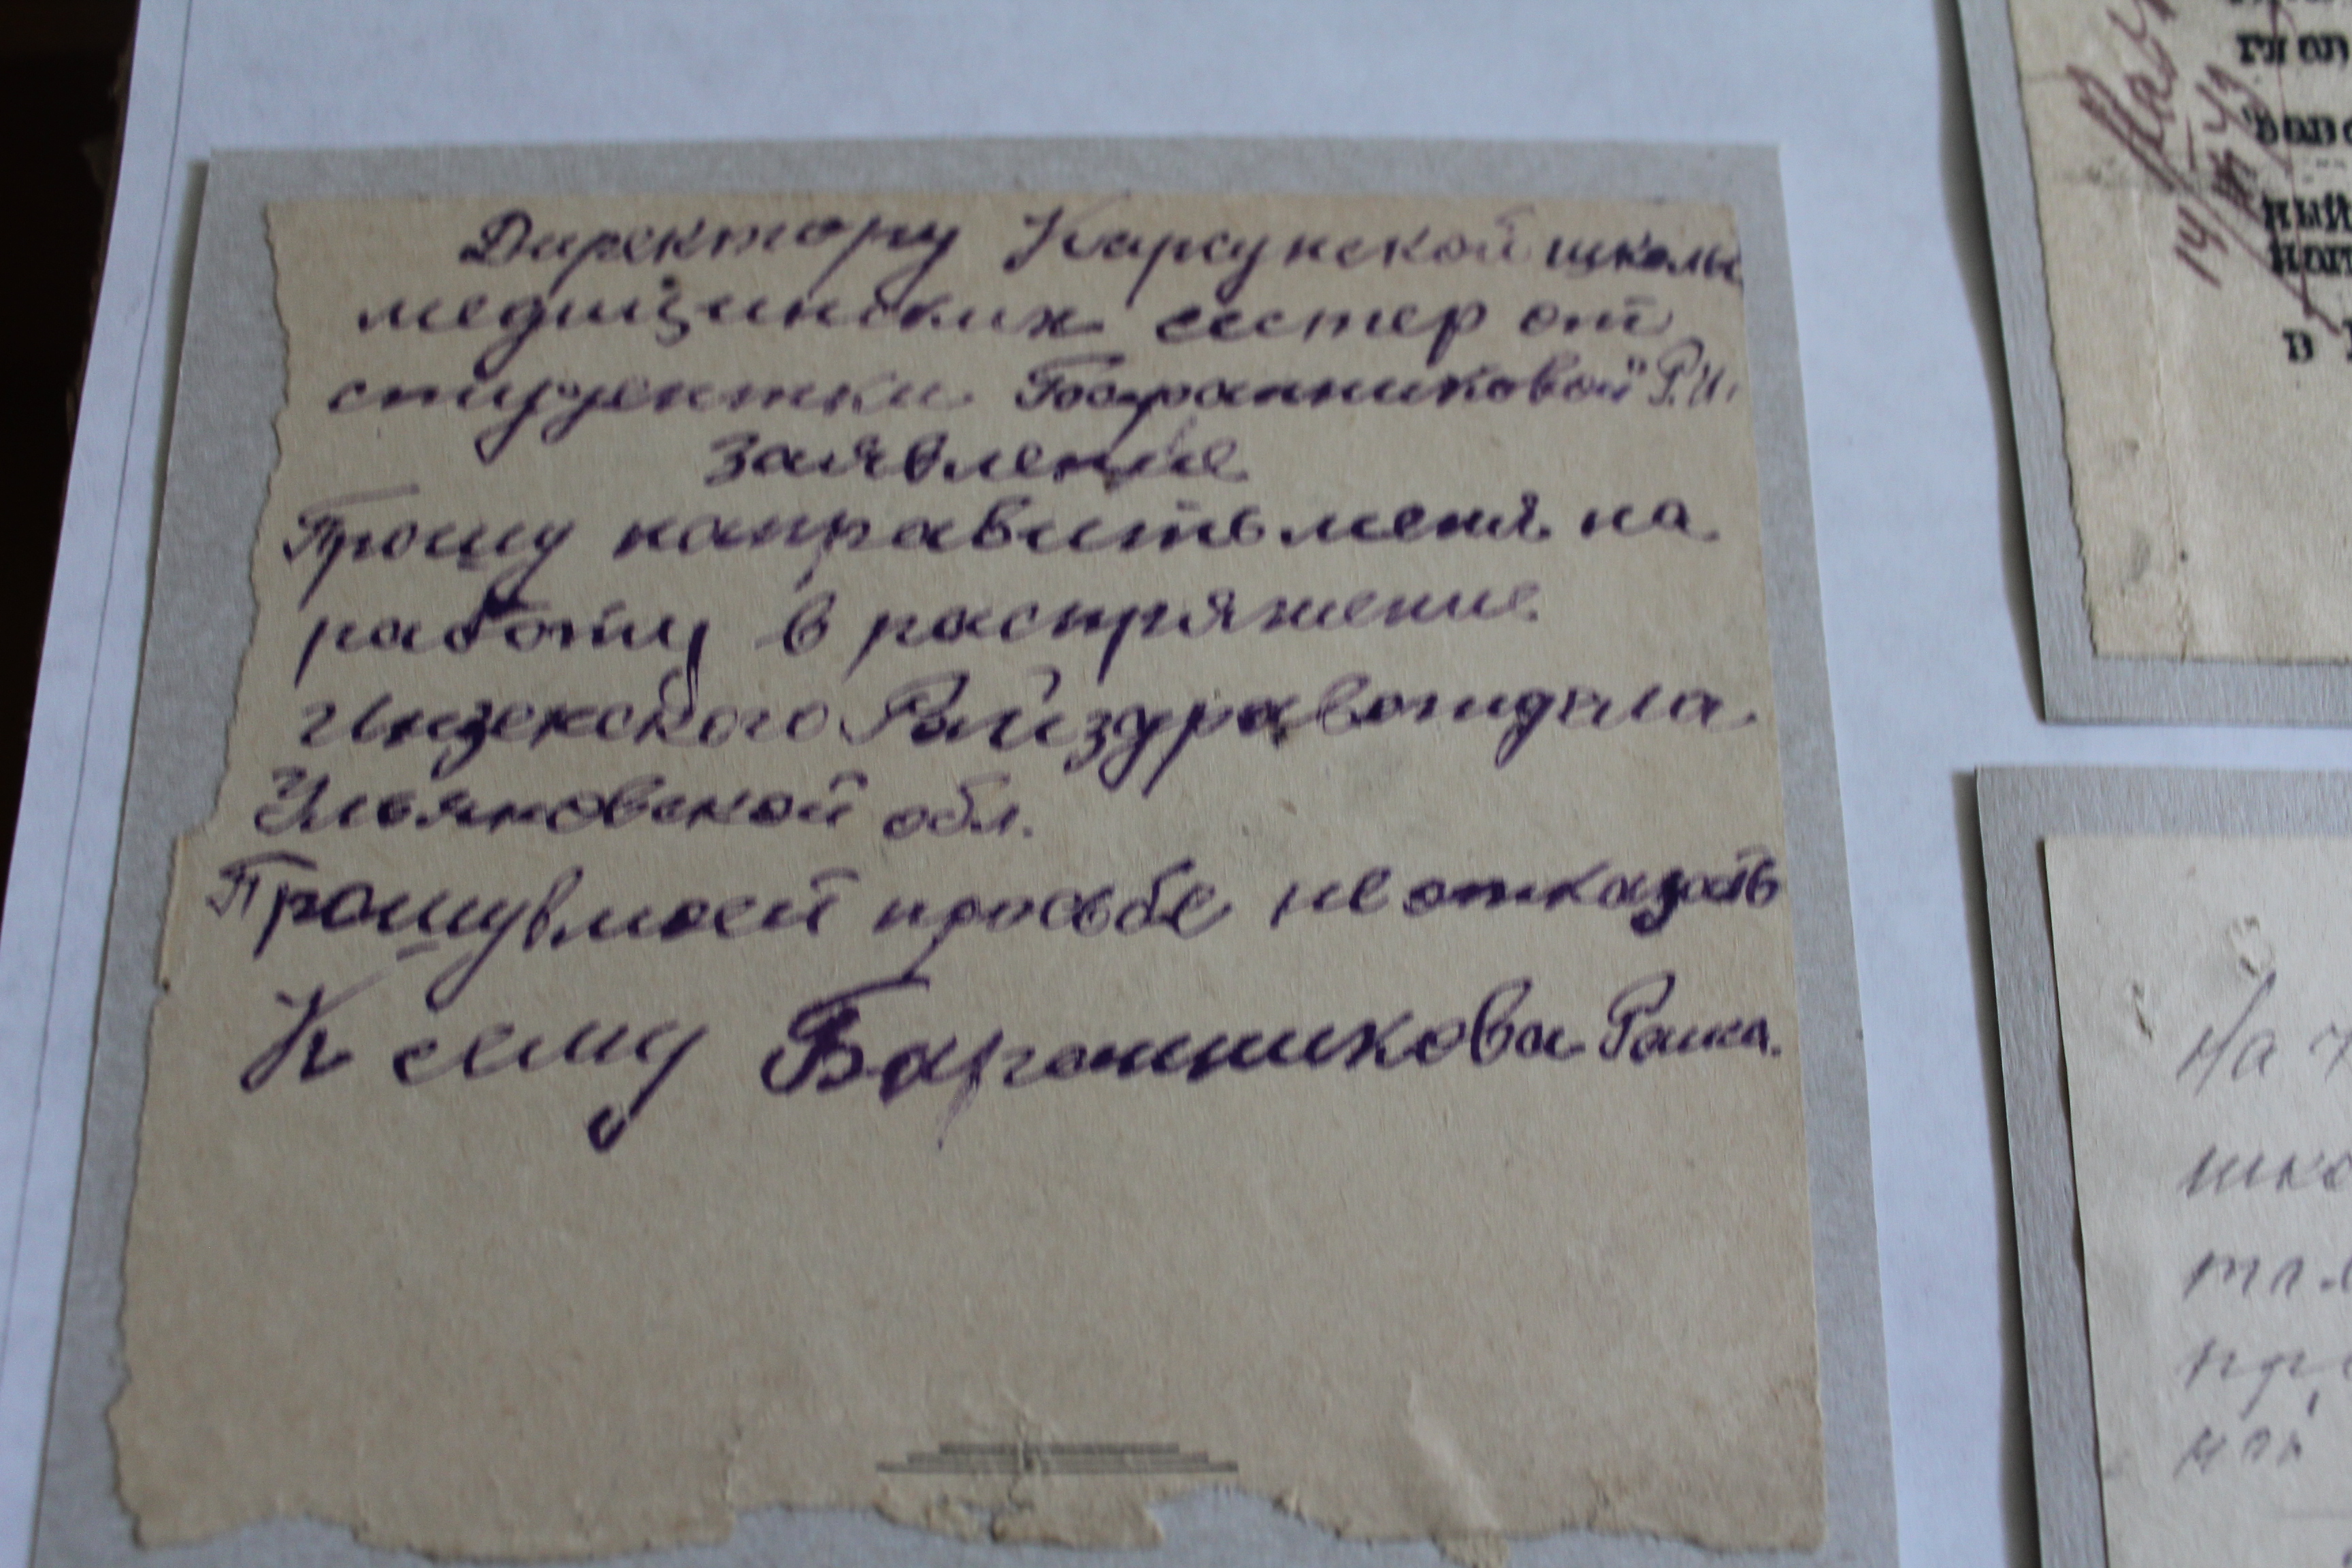 Директору Карсунской школы
медицинских сестер от
студентки Баранниковой Р.И.
заявление
Прошу направить меня на
работу в распряжение
Инзенского Райздравотдела
Ульяновской обл.
Прошу в моей просьбе не отказать
К сему Баранникова Раиса.
14/III 43
На